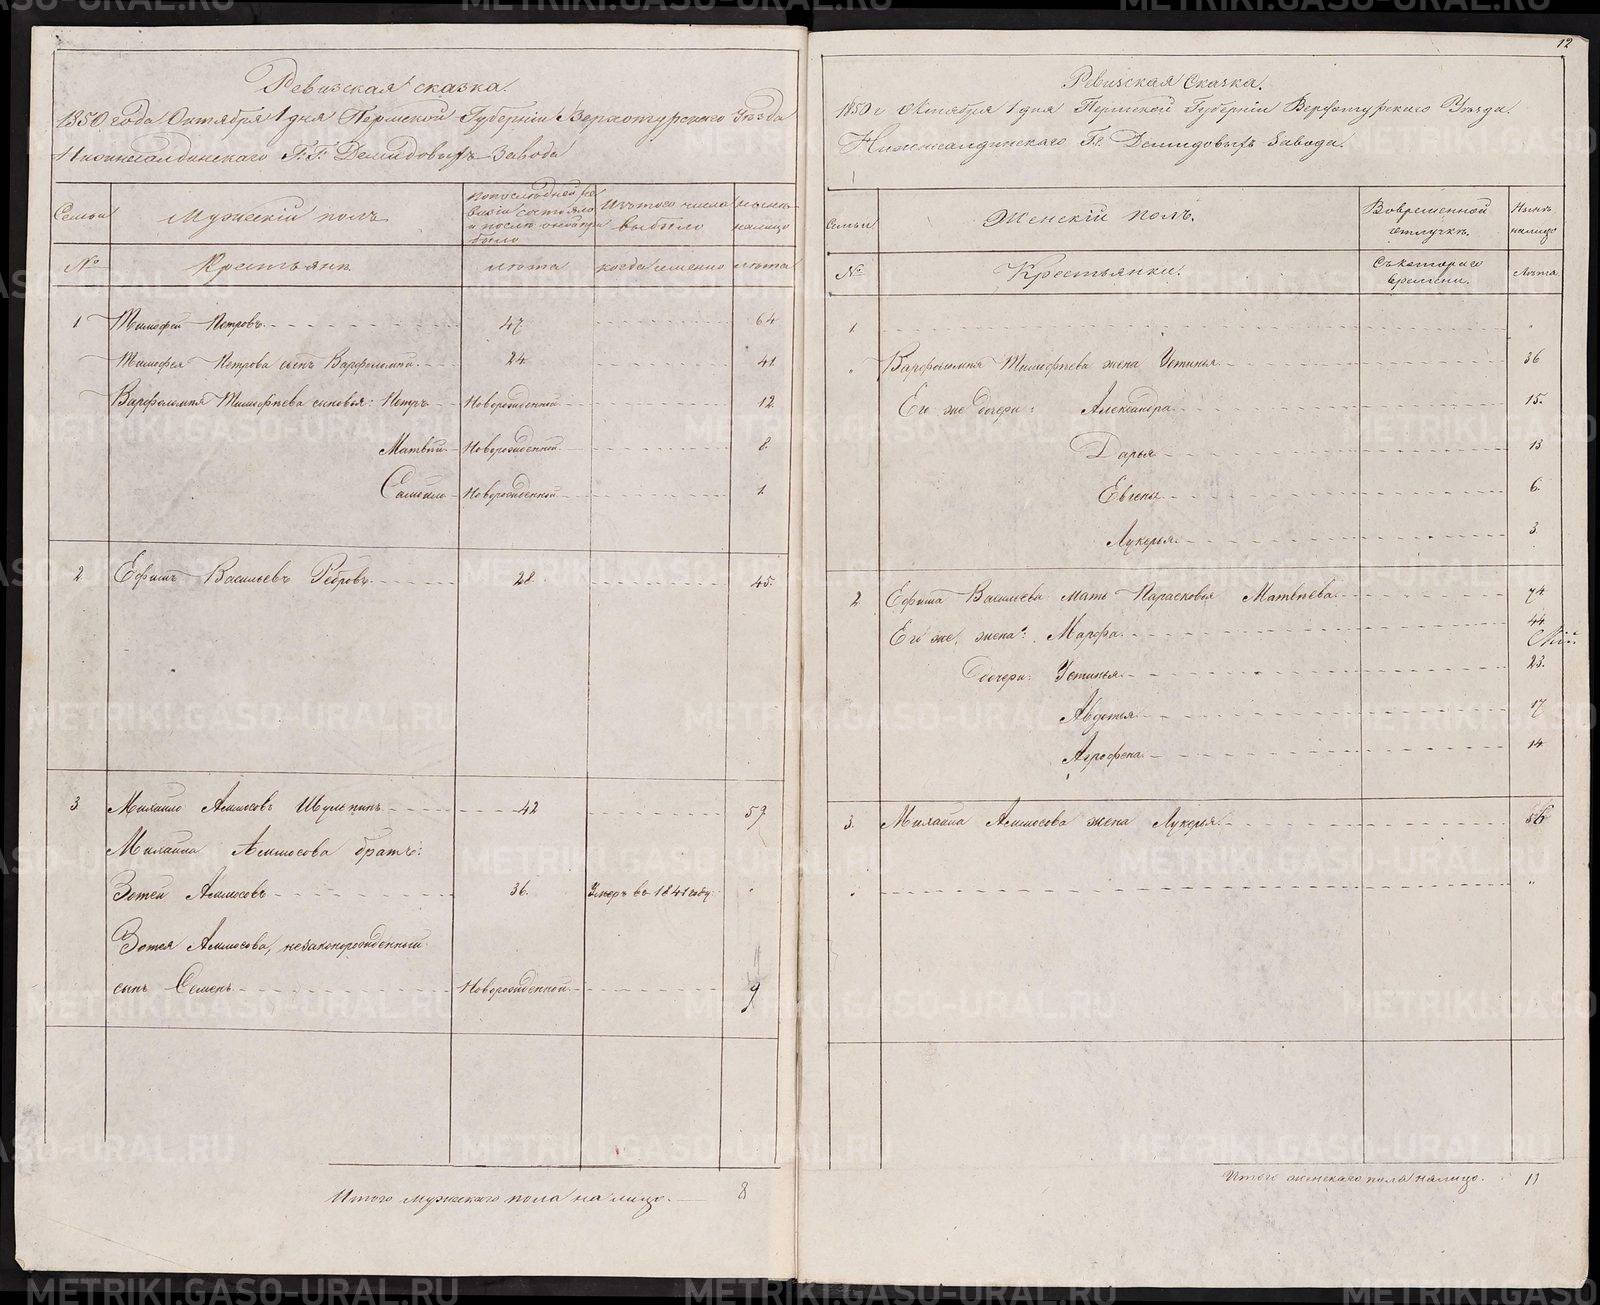 Ревизская сказка.
1850 года Октября 1 дня Пермской Губерніи Верхотурскаго Уезда
Нижнесалдинскаго Г.Г. Демидовыхъ Завода
Семьи
Мужескій полъ
По последней ревизіи состояло и после оной прибыло
Изъ того числа выбыло
Ныне налицо
№
Крестьяне
лета
когда именно
лета
1 Тимофей Петровъ 47 64
Тимофея Петрова сынъ Варфоломей 24 41
Варфоломея Тимофеева сыновья: Петръ Новорожденной 12
Матвей Новорожденной 8
Самойло Новорожденной 1
2 Ефимъ Васильевъ Ребровъ 28. 45.
3 Михайло Аммосовъ Шульпинъ 42 59
Михайла Аммосова братъ:
Зотей Аммосовъ 36. Умеръ въ 1841 году
Зотея Аммосова, незаконорожденный
сынъ Семенъ Новорожденной 9
Итого мужескаго пола на лицо. 8
12
Ревизская Сказка.
1850 г Октября 1 дня Пермской Губерніи Верхотурскаго Уезда.
Нижнесалдинскаго Гг. Демидовыхъ Завода.
Семьи
Женскій полъ.
Во временной отлучке.
Ныне налицо
№
Крестьянки.
Съ котораго времени.
Лета
1
Варфоломея Тимофеева жена Устинья 36
Его же дочери: Александра 15.
Дарья 13
Евгенья 6.
Лукерья 3.
2 Ефима Васильева мать Парасковья Матвеева 74
Его же, жена: Марфа 44
Дочери: Устинья 23.
Авдотья 17
Агрофена 14
3. Михайла Аммосова жена Лукерья 56
Итого женскаго пола налицо. 11
METRIKI.GASO-URAL.RU